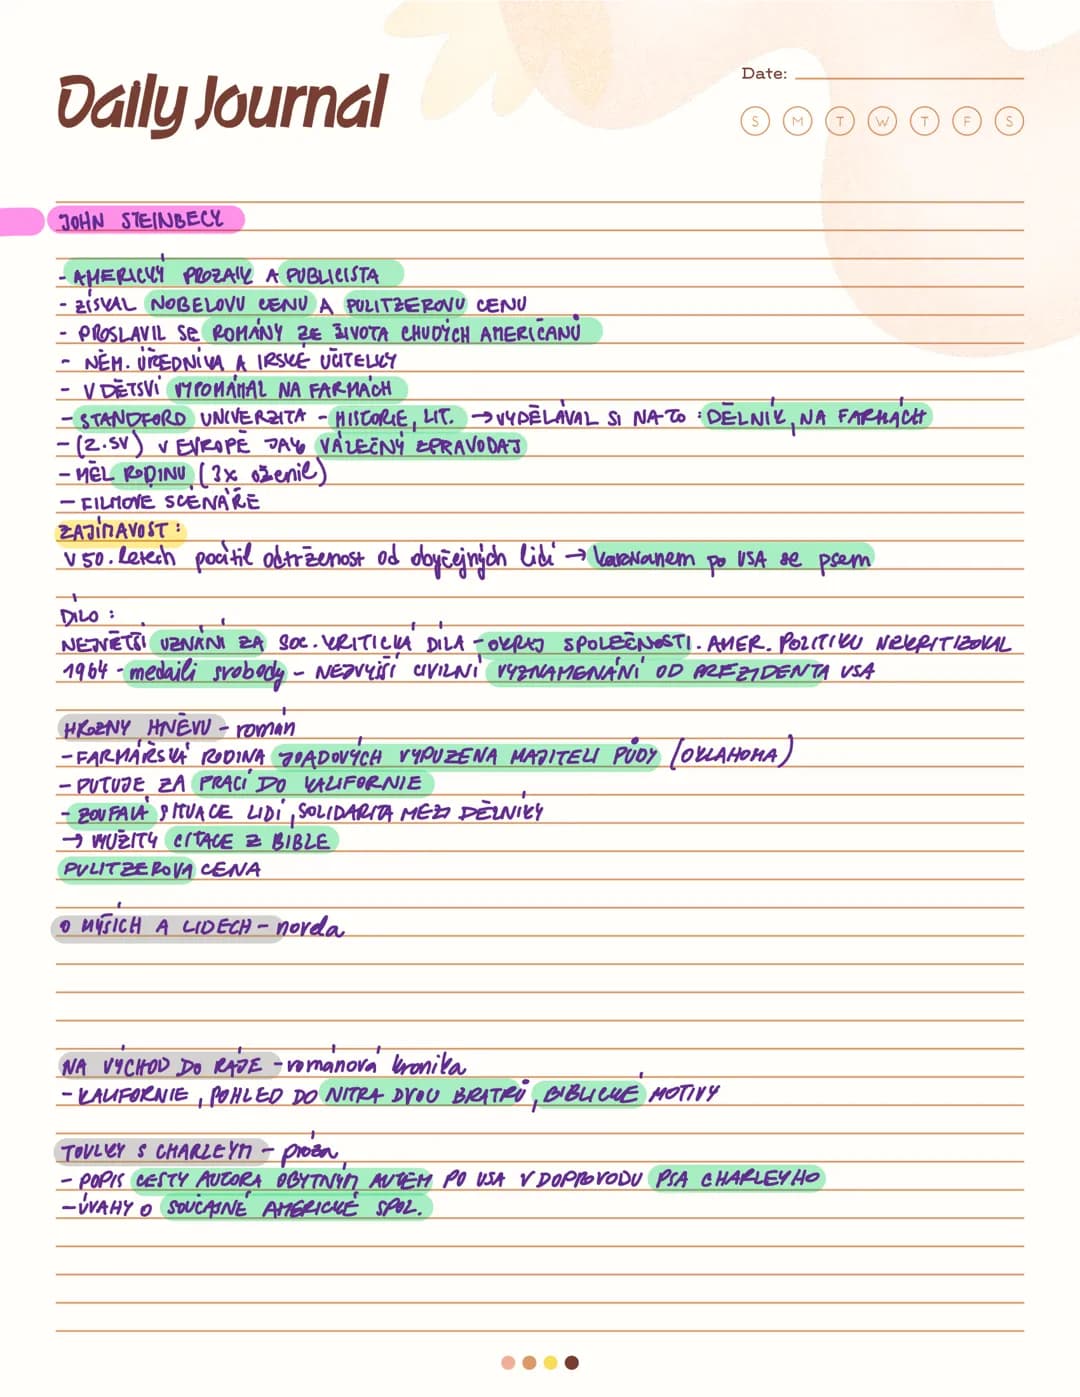 Daily Journal
Date:
S M T W T F S
JOHN STEINBECK
- AMERICKÝ PROZAIK A PUBLICISTA
- ZÍSKAL NOBELOVU CENU A PULITZEROVU CENU
- PROSLAVIL SE ROMÁNY ZE ŽIVOTA CHUDÝCH AMERIČANŮ
- NĚM. ÚŘEDNÍKA A IRSKÉ UČITELKY
- V DĚTSVÍ VYPOMÁHAL NA FARMÁCH
- STANDFORD UNIVERZITA - HISTORIE, LIT. → VYDĚLÁVAL SI NA TO: DĚLNÍK, NA FARMÁCH
- (2.SV) V EVROPĚ JAKO VÁLEČNÝ ZPRAVODAJ
- MĚL RODINU (3x oženil)
- FILMOVÉ SCÉNÁŘE
ZAJÍMAVOST:
V 50. letech pocítil odtrženost od obyčejných lidí → karavanem po USA se psem
DÍLO:
NEJVĚTŠÍ UZNÁNÍ ZA SOC. KRITICKÁ DÍLA - OKRAJ SPOLEČNOSTI. AMER. POLITIKU NEKRITIZOVAL
1964 - medaili svobody - NEJVYŠŠÍ CIVILNÍ VYZNAMENÁNÍ OD PREZIDENTA USA
HROZNY HNĚVU - román
- FARMÁŘSKÁ RODINA JOADOVÝCH VYPUZENA MAJITELI PŮDY (OKLAHOMA)
- PUTUJE ZA PRACÍ DO KALIFORNIE
- ZOUFALÁ SITUACE LIDÍ, SOLIDARITA MEZI DĚLNÍKY
→ VYUŽITY CITACE Z BIBLE
PULITZEROVA CENA
O MYŠÍCH A LIDECH - novela
NA VÝCHOD DO RÁJE - románová kronika
- KALIFORNIE, POHLED DO NITRA DVOU BRATRŮ, BIBLICKÉ MOTIVY
TOULKY S CHARLEYM - próza
- POPIS CESTY AUTORA OBYTNÝM AUTEM PO USA V DOPROVODU PSA CHARLEYHO
- ÚVAHY O SOUČASNÉ AMERICKÉ SPOL.